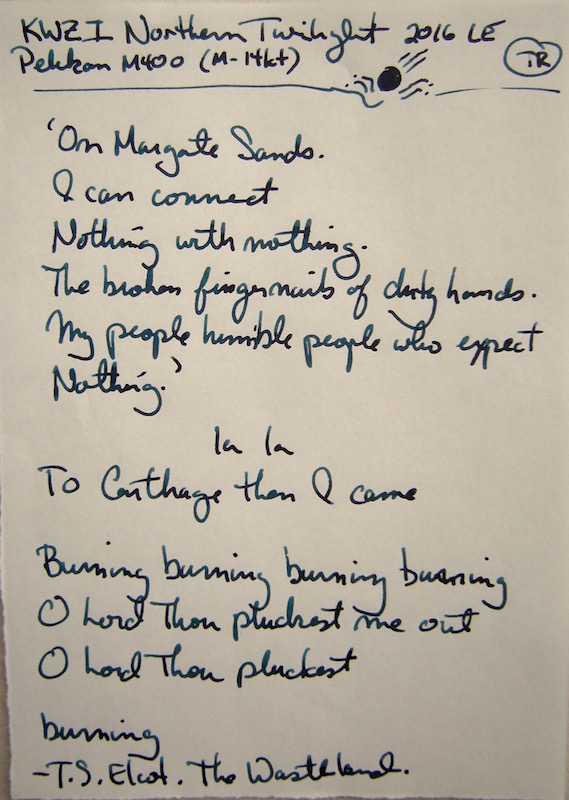 KWZI Northern Twilight 2016 LE
Pelikan M400 (M-14kt)
TR
'On Margate Sands.
I can connect
Nothing with nothing.
The broken fingernails of dirty hands.
My people humble people who expect
Nothing.'
la la
To Carthage then I came
Burning burning burning burning
O Lord Thou pluckest me out
O Lord Thou pluckest
burning
-T.S. Eliot. The Wasteland.